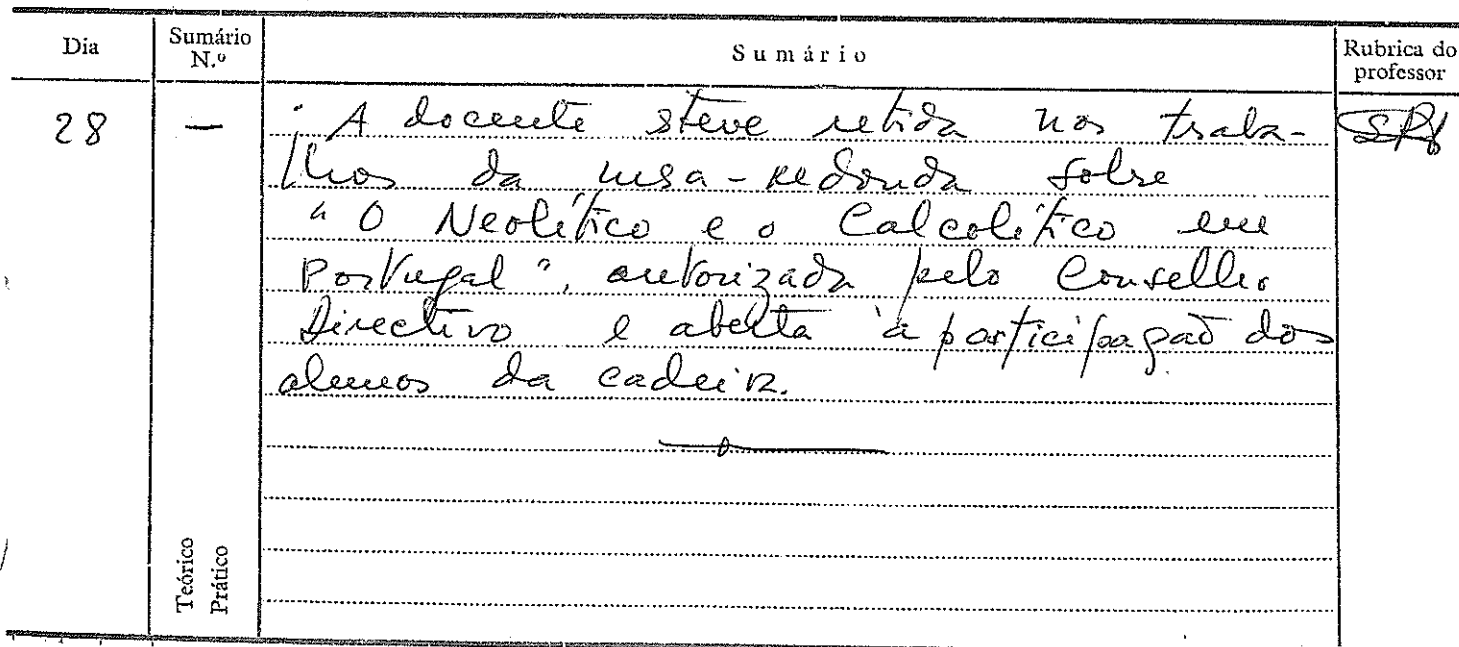 Dia
Sumário N.º
Sumário
Rubrica do professor
28
—
A docente steve retida nos traba-
lhos da mesa-redonda sobre
"O Neolítico e o Calcolítico em
Portugal", autorizada pelo Conselho
Directivo e aberta à participação dos
alunos da cadeira.
Teórico
Prático